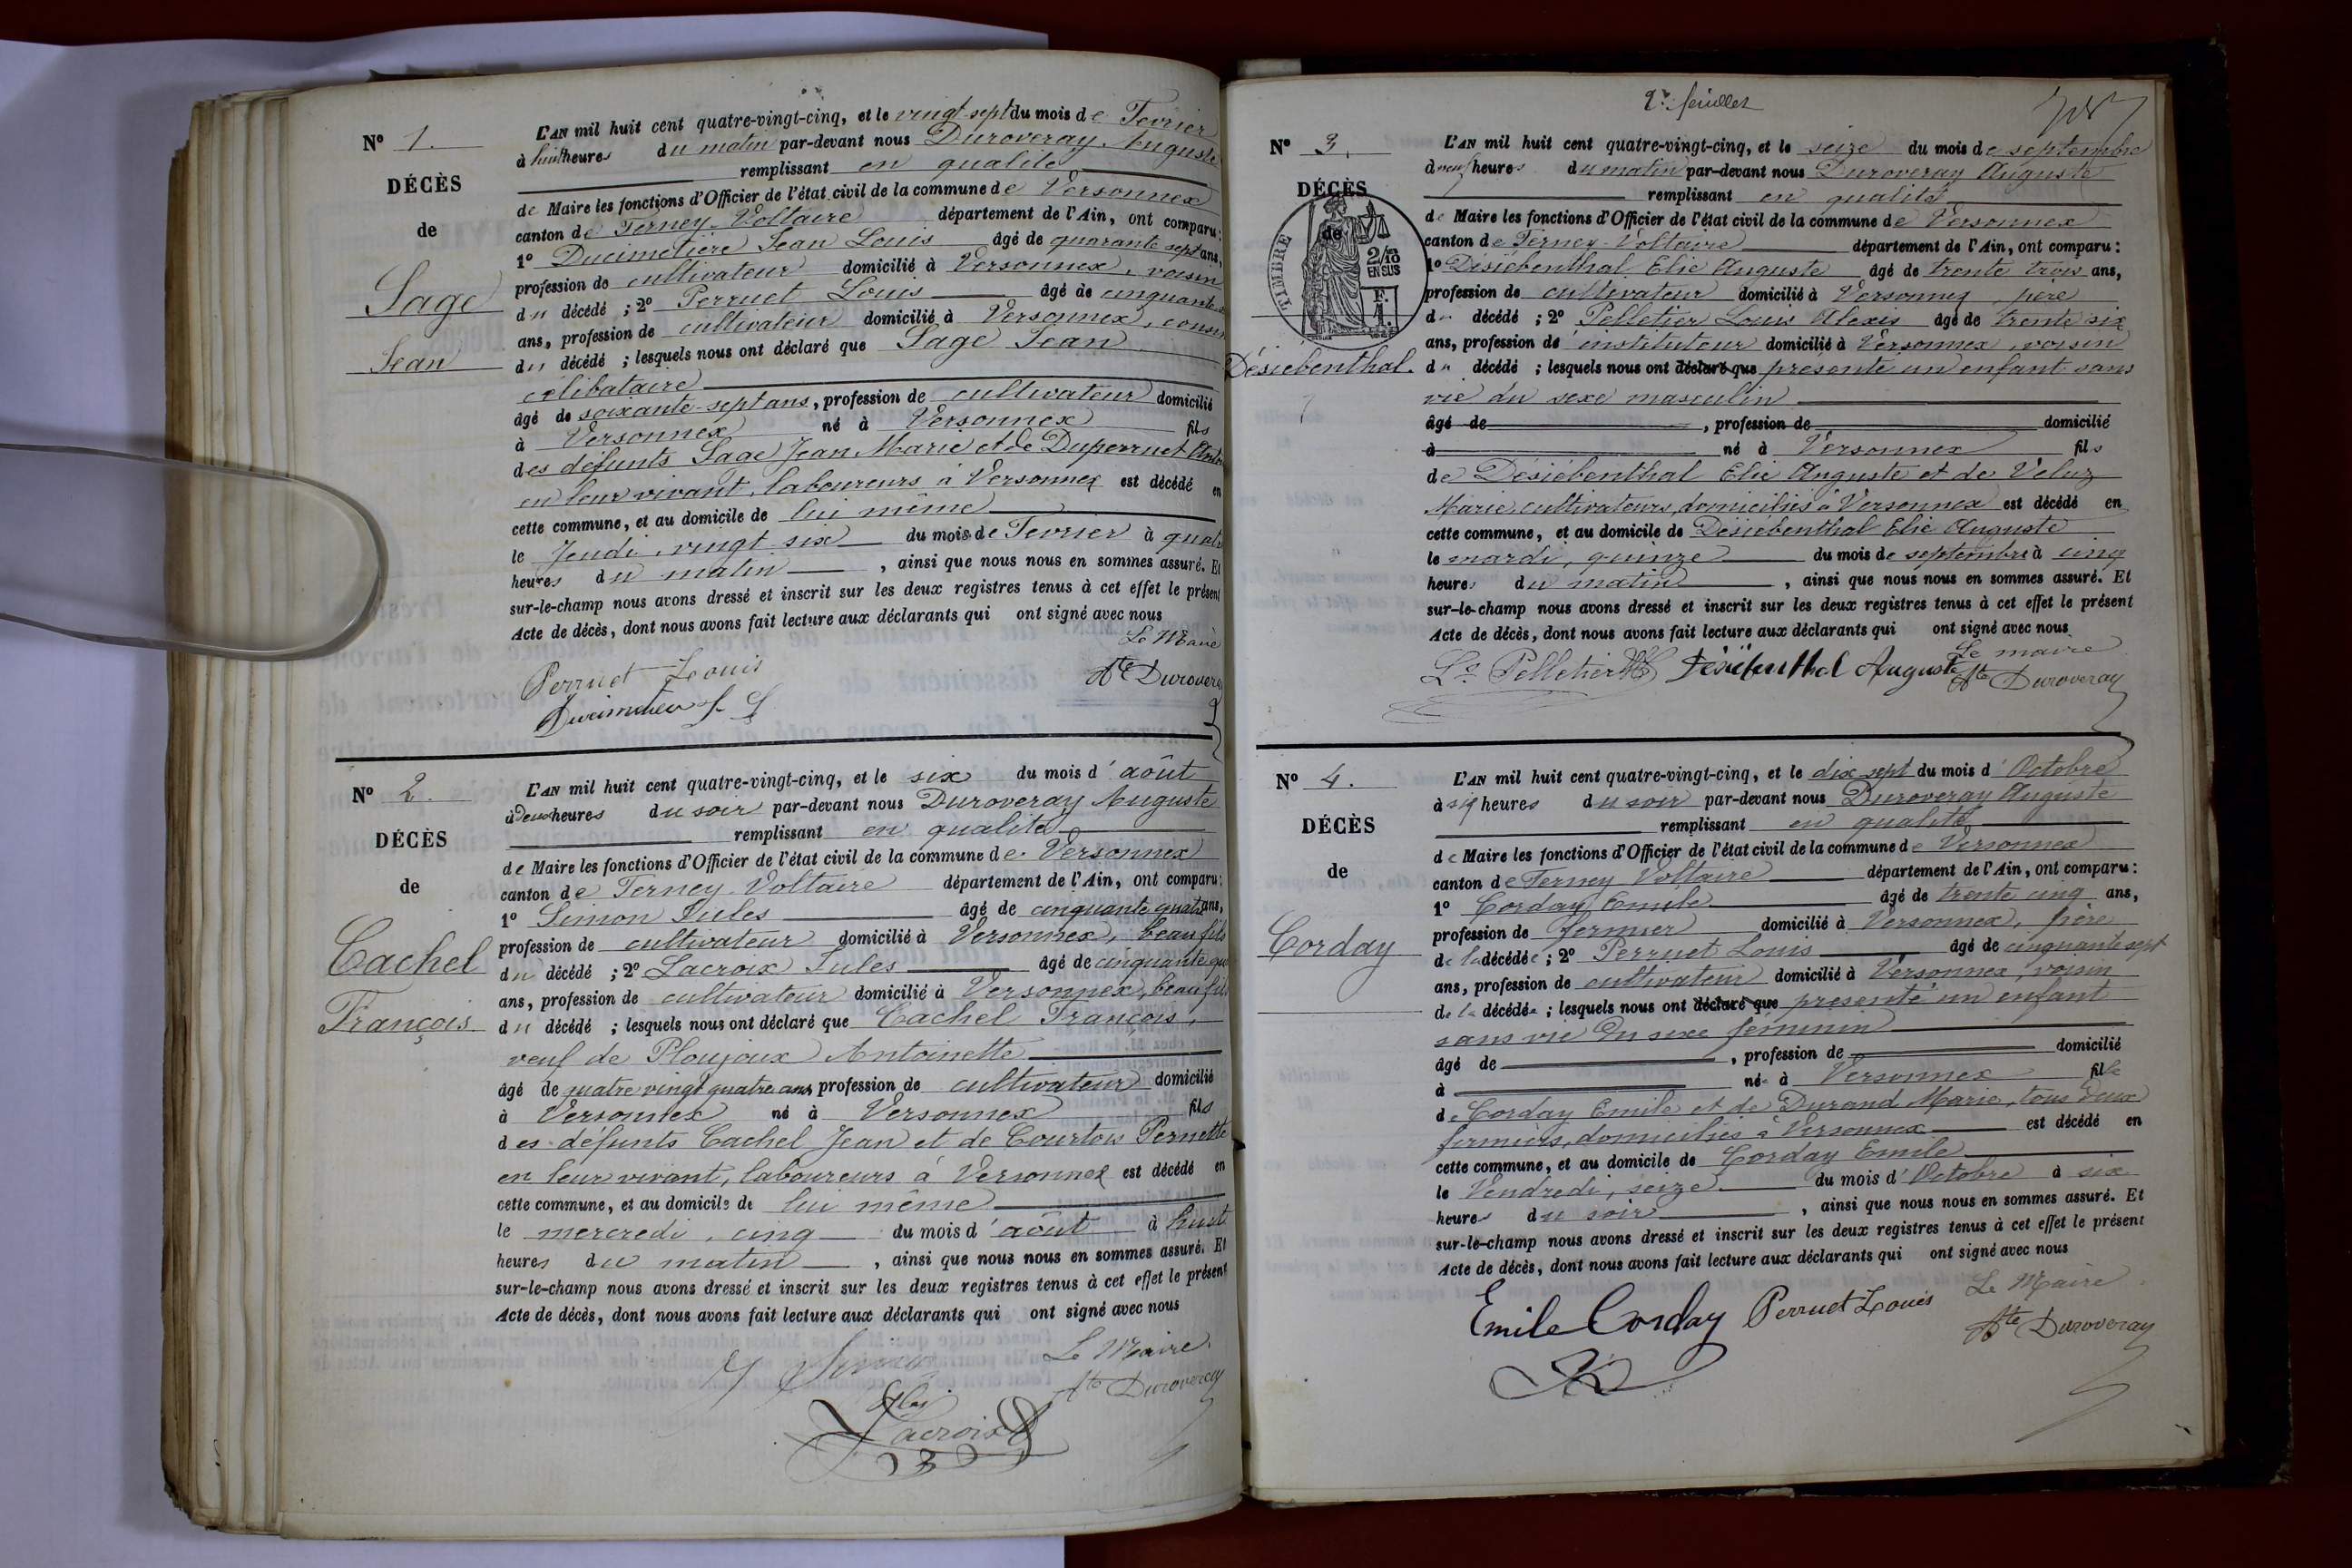 Nº 1.
DÉCÈS
de
Sage
Jean
L'AN mil huit cent quatre-vingt-cinq, et le vingt sept du mois de Fevrier
à huit heures du matin par-devant nous Duroveray Auguste
remplissant en qualité
de Maire les fonctions d'Officier de l'état civil de la commune de Versonnex
canton de Ferney-Voltaire département de l'Ain, ont comparu :
1º Ducimetière Jean Louis âgé de quarante sept ans,
profession de cultivateur domicilié à Versonnex, voisin
du décédé ; 2º Perruet Louis âgé de cinquante
ans, profession de cultivateur domicilié à Versonnex, cousin
du décédé ; lesquels nous ont déclaré que Sage Jean
célibataire
âgé de soixante-sept ans, profession de cultivateur domicilié
à Versonnex né à Versonnex fils
des défunts Sage Jean Marie et de Duperruet
en leur vivant, laboureurs à Versonnex est décédé en
cette commune, et au domicile de lui même
le Jeudi, vingt six du mois de Fevrier à quatre
heures du matin, ainsi que nous nous en sommes assuré. Et
sur-le-champ nous avons dressé et inscrit sur les deux registres tenus à cet effet le présent
Acte de décès, dont nous avons fait lecture aux déclarants qui ont signé avec nous
Le Maire
Perruet Louis
Ate Duroveray
Ducimetière J. L
Nº 2.
DÉCÈS
de
Cachel
François
L'AN mil huit cent quatre-vingt-cinq, et le six du mois d'août
à Deux heures du soir par-devant nous Duroveray Auguste
remplissant en qualité
de Maire les fonctions d'Officier de l'état civil de la commune de Versonnex
canton de Ferney-Voltaire département de l'Ain, ont comparu :
1º Simon Jules âgé de cinquante quatre ans,
profession de cultivateur domicilié à Versonnex, beau fils
du décédé ; 2º Lacroix Jules âgé de cinquante
ans, profession de cultivateur domicilié à Versonnex, beau fils
du décédé ; lesquels nous ont déclaré que Cachel François,
veuf de Ploujoux Antoinette
âgé de quatre vingt quatre ans, profession de cultivateur domicilié
à Versonnex né à Versonnex fils
des défunts Cachel Jean et de Courtois Pernette
en leur vivant, laboureurs à Versonnex est décédé en
cette commune, et au domicile de lui même
le mercredi, cinq du mois d'août à huit
heures du matin, ainsi que nous nous en sommes assuré. Et
sur-le-champ nous avons dressé et inscrit sur les deux registres tenus à cet effet le présent
Acte de décès, dont nous avons fait lecture aux déclarants qui ont signé avec nous
Le Maire
Ate Duroveray
Lacroix
2e feuillet
Nº 3.
DÉCÈS
de
TIMBRE
2/10 EN SUS
F. 1.
Désiébenthal.
L'AN mil huit cent quatre-vingt-cinq, et le seize du mois de septembre
à neuf heures du matin par-devant nous Duroveray Auguste
remplissant en qualité
de Maire les fonctions d'Officier de l'état civil de la commune de Versonnex
canton de Ferney-Voltaire département de l'Ain, ont comparu :
1º Désiébenthal Elie Auguste âgé de trente trois ans,
profession de cultivateur domicilié à Versonnex, père
du décédé ; 2º Pelletier Louis Alexis âgé de trente six
ans, profession de instituteur domicilié à Versonnex, voisin
du décédé ; lesquels nous ont déclaré que présenté un enfant sans
vie du sexe masculin
âgé de , profession de domicilié
à né à Versonnex fils
de Désiébenthal Elie Auguste et de Veluz
Marie cultivateurs, domiciliés à Versonnex est décédé en
cette commune, et au domicile de Désiébenthal Elie Auguste
le mardi, quinze du mois de septembre à cinq
heures du matin, ainsi que nous nous en sommes assuré. Et
sur-le-champ nous avons dressé et inscrit sur les deux registres tenus à cet effet le présent
Acte de décès, dont nous avons fait lecture aux déclarants qui ont signé avec nous
Le maire
Ls Pelletier Désiébenthal Auguste Ate Duroveray
Nº 4.
DÉCÈS
de
Corday
L'AN mil huit cent quatre-vingt-cinq, et le dix sept du mois d'Octobre
à six heures du soir par-devant nous Duroveray Auguste
remplissant en qualité
de Maire les fonctions d'Officier de l'état civil de la commune de Versonnex
canton de Ferney Voltaire département de l'Ain, ont comparu :
1º Corday Emile âgé de trente cinq ans,
profession de fermier domicilié à Versonnex, père
de la décédée ; 2º Perruet Louis âgé de cinquante sept
ans, profession de cultivateur domicilié à Versonnex, voisin
de la décédée ; lesquels nous ont déclaré que présenté un enfant
sans vie du sexe féminin
âgé de , profession de domicilié
à née à Versonnex fille
de Corday Emile et de Durand Marie, tous deux
fermiers, domiciliés à Versonnex est décédé en
cette commune, et au domicile de Corday Emile
le Vendredi, seize du mois d'Octobre à six
heures du soir, ainsi que nous nous en sommes assuré. Et
sur-le-champ nous avons dressé et inscrit sur les deux registres tenus à cet effet le présent
Acte de décès, dont nous avons fait lecture aux déclarants qui ont signé avec nous
Emile Corday Perruet Louis Le Maire
Ate Duroveray